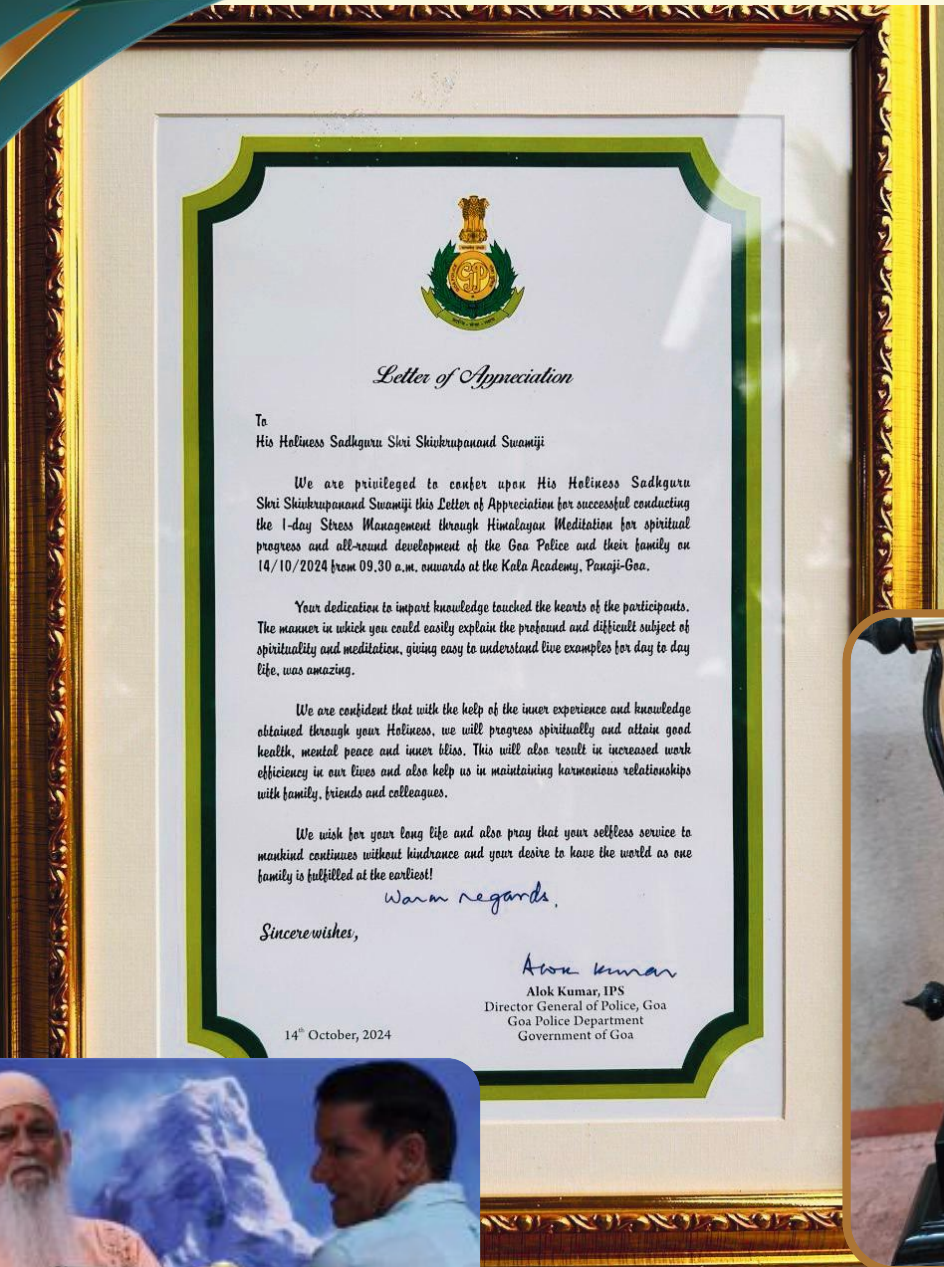 Letter of Appreciation
To
His Holiness Sadhguru Shri Shivkrupanand Swamiji
We are privileged to confer upon His Holiness Sadhguru
Shri Shivkrupanand Swamiji this Letter of Appreciation for successful conducting
the 1-day Stress Management through Himalayan Meditation for spiritual
progress and all-round development of the Goa Police and their family on
14/10/2024 from 09.30 a.m. onwards at the Kala Academy, Panaji-Goa.
Your dedication to impart knowledge touched the hearts of the participants.
The manner in which you could easily explain the profound and difficult subject of
spirituality and meditation, giving easy to understand live examples for day to day
life, was amazing.
We are confident that with the help of the inner experience and knowledge
obtained through your Holiness, we will progress spiritually and attain good
health, mental peace and inner bliss. This will also result in increased work
efficiency in our lives and also help us in maintaining harmonious relationships
with family, friends and colleagues.
We wish for your long life and also pray that your selfless service to
mankind continues without hindrance and your desire to have the world as one
family is fulfilled at the earliest!
Warm regards,
Sincere wishes,
Alok Kumar
Alok Kumar, IPS
Director General of Police, Goa
Goa Police Department
Government of Goa
14th October, 2024